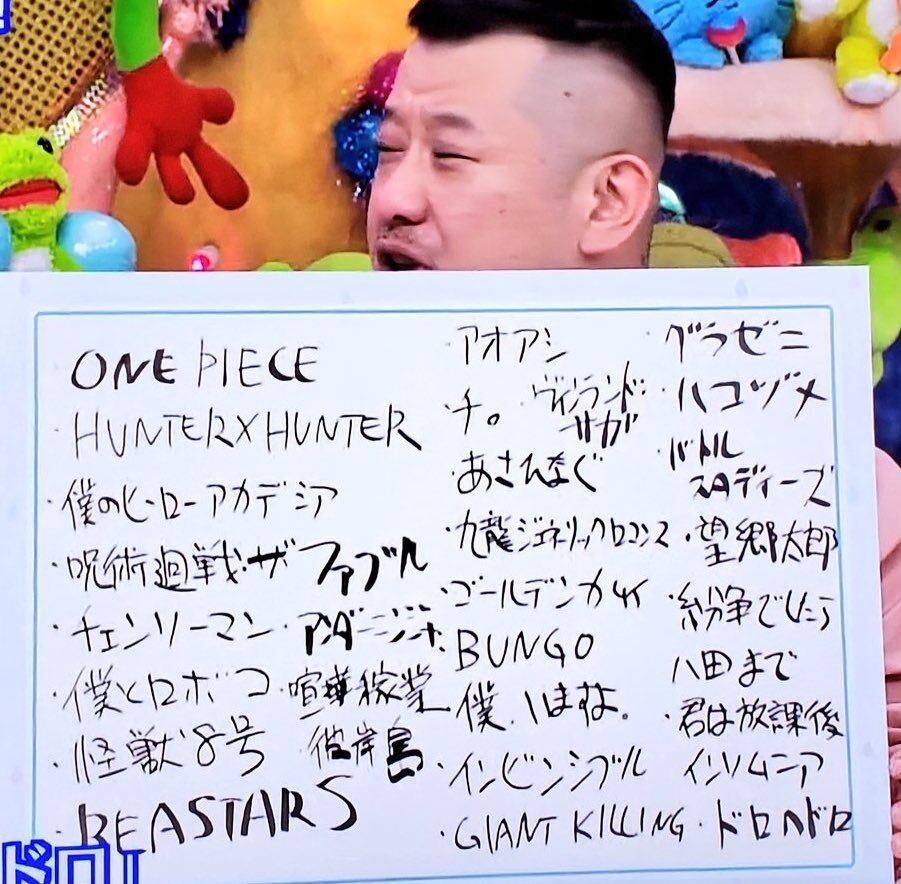 ・ONE PIECE
・HUNTER×HUNTER
・僕のヒーローアカデミア
・呪術廻戦・ザ ファブル
・チェンソーマン・アンダーニンジャ
・僕とロボコ・喧嘩稼業
・怪獣8号 彼岸島
・BEASTARS
・アオアシ
・チ。・ヴィンランド・サガ
・あさひなぐ
・九龍ジェネリックロマンス
・ゴールデンカムイ
・BUNGO
・僕
・インビンシブル
・GIANT KILLING
・グラゼニ
・ハコヅメ
・バトル
スタディーズ
・望郷太郎
・紛争でしたら
八田まで
・君は放課後
インソムニア
・ドロヘドロ
ドロ!